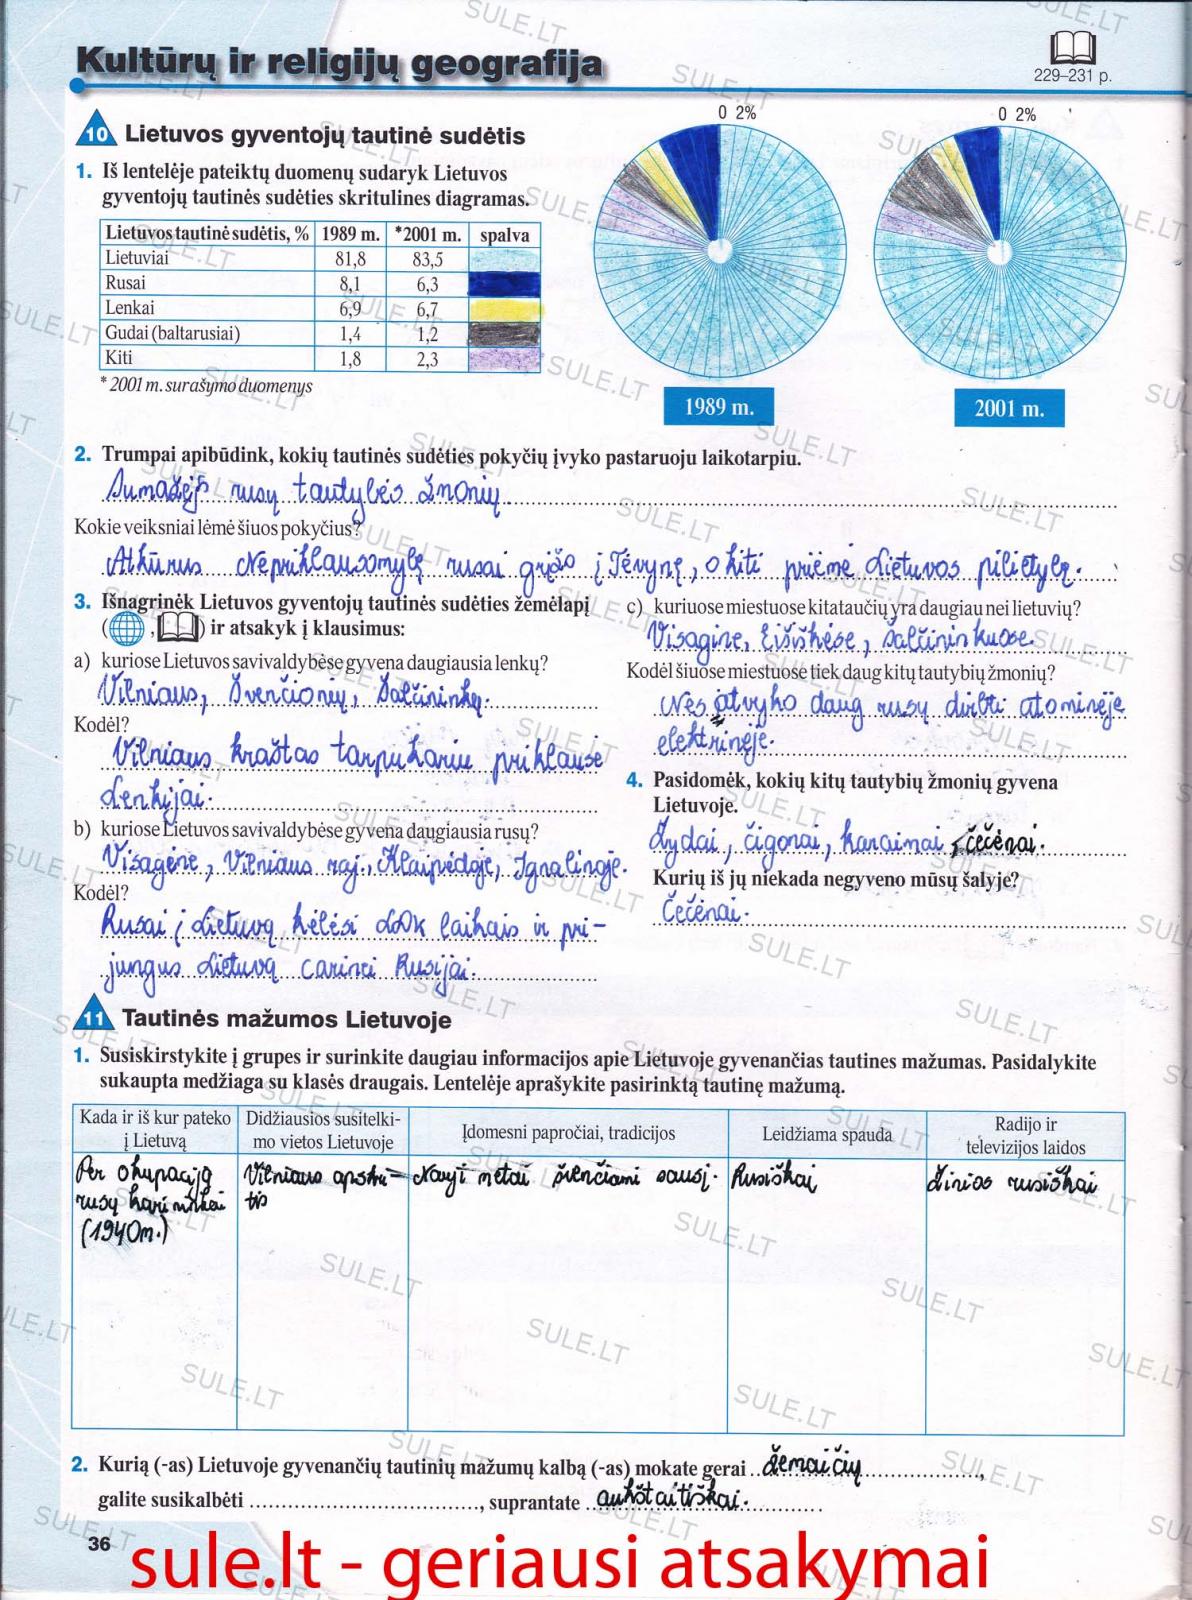 Kultūrų ir religijų geografija
229–231 p.
10 Lietuvos gyventojų tautinė sudėtis
1. Iš lentelėje pateiktų duomenų sudaryk Lietuvos
gyventojų tautinės sudėties skritulines diagramas.
Lietuvos tautinė sudėtis, % 1989 m. *2001 m. spalva
Lietuviai 81,8 83,5
Rusai 8,1 6,3
Lenkai 6,9 6,7
Gudai (baltarusiai) 1,4 1,2
Kiti 1,8 2,3
* 2001 m. surašymo duomenys
0 2%
1989 m.
0 2%
2001 m.
2. Trumpai apibūdink, kokių tautinės sudėties pokyčių įvyko pastaruoju laikotarpiu.
Sumažėjo rusų tautybės žmonių
Kokie veiksniai lėmė šiuos pokyčius?
Atkūrus Nepriklausomybę rusai grįžo į Tėvynę, o kiti priėmė Lietuvos pilietybę.
3. Išnagrinėk Lietuvos gyventojų tautinės sudėties žemėlapį
( , ) ir atsakyk į klausimus:
a) kuriose Lietuvos savivaldybėse gyvena daugiausia lenkų?
Vilniaus, Švenčionių, Šalčininkų.
Kodėl?
Vilniaus kraštas tarpukariu priklausė
Lenkijai.
b) kuriose Lietuvos savivaldybėse gyvena daugiausia rusų?
Visagine, Vilniaus raj., Klaipėdoje, Ignalinoje.
Kodėl?
Rusai į Lietuvą kėlėsi LDK laikais ir pri-
jungus Lietuvą carinei Rusijai.
c) kuriuose miestuose kitataučių yra daugiau nei lietuvių?
Visagine, Eišiškėse, Šalčininkuose.
Kodėl šiuose miestuose tiek daug kitų tautybių žmonių?
Nes atvyko daug rusų dirbti atominėje
elektrinėje.
4. Pasidomėk, kokių kitų tautybių žmonių gyvena
Lietuvoje.
Žydai, čigonai, karaimai, čečėnai.
Kurių iš jų niekada negyveno mūsų šalyje?
Čečėnai.
11 Tautinės mažumos Lietuvoje
1. Susiskirstykite į grupes ir surinkite daugiau informacijos apie Lietuvoje gyvenančias tautines mažumas. Pasidalykite
sukaupta medžiaga su klasės draugais. Lentelėje aprašykite pasirinktą tautinę mažumą.
Kada ir iš kur pateko
į Lietuvą
Didžiausios susitelki-
mo vietos Lietuvoje
Įdomesni papročiai, tradicijos
Leidžiama spauda
Radijo ir
televizijos laidos
Per okupaciją
rusų karininkai
(1940m.)
Vilniaus apskri-
tis
Nauji metai švenčiami sausį.
Rusiškai
Žinios rusiškai
2. Kurią (-as) Lietuvoje gyvenančių tautinių mažumų kalbą (-as) mokate gerai žemaičių,
galite susikalbėti , suprantate aukštaitiškai.
36
sule.lt - geriausi atsakymai
SULE.LT